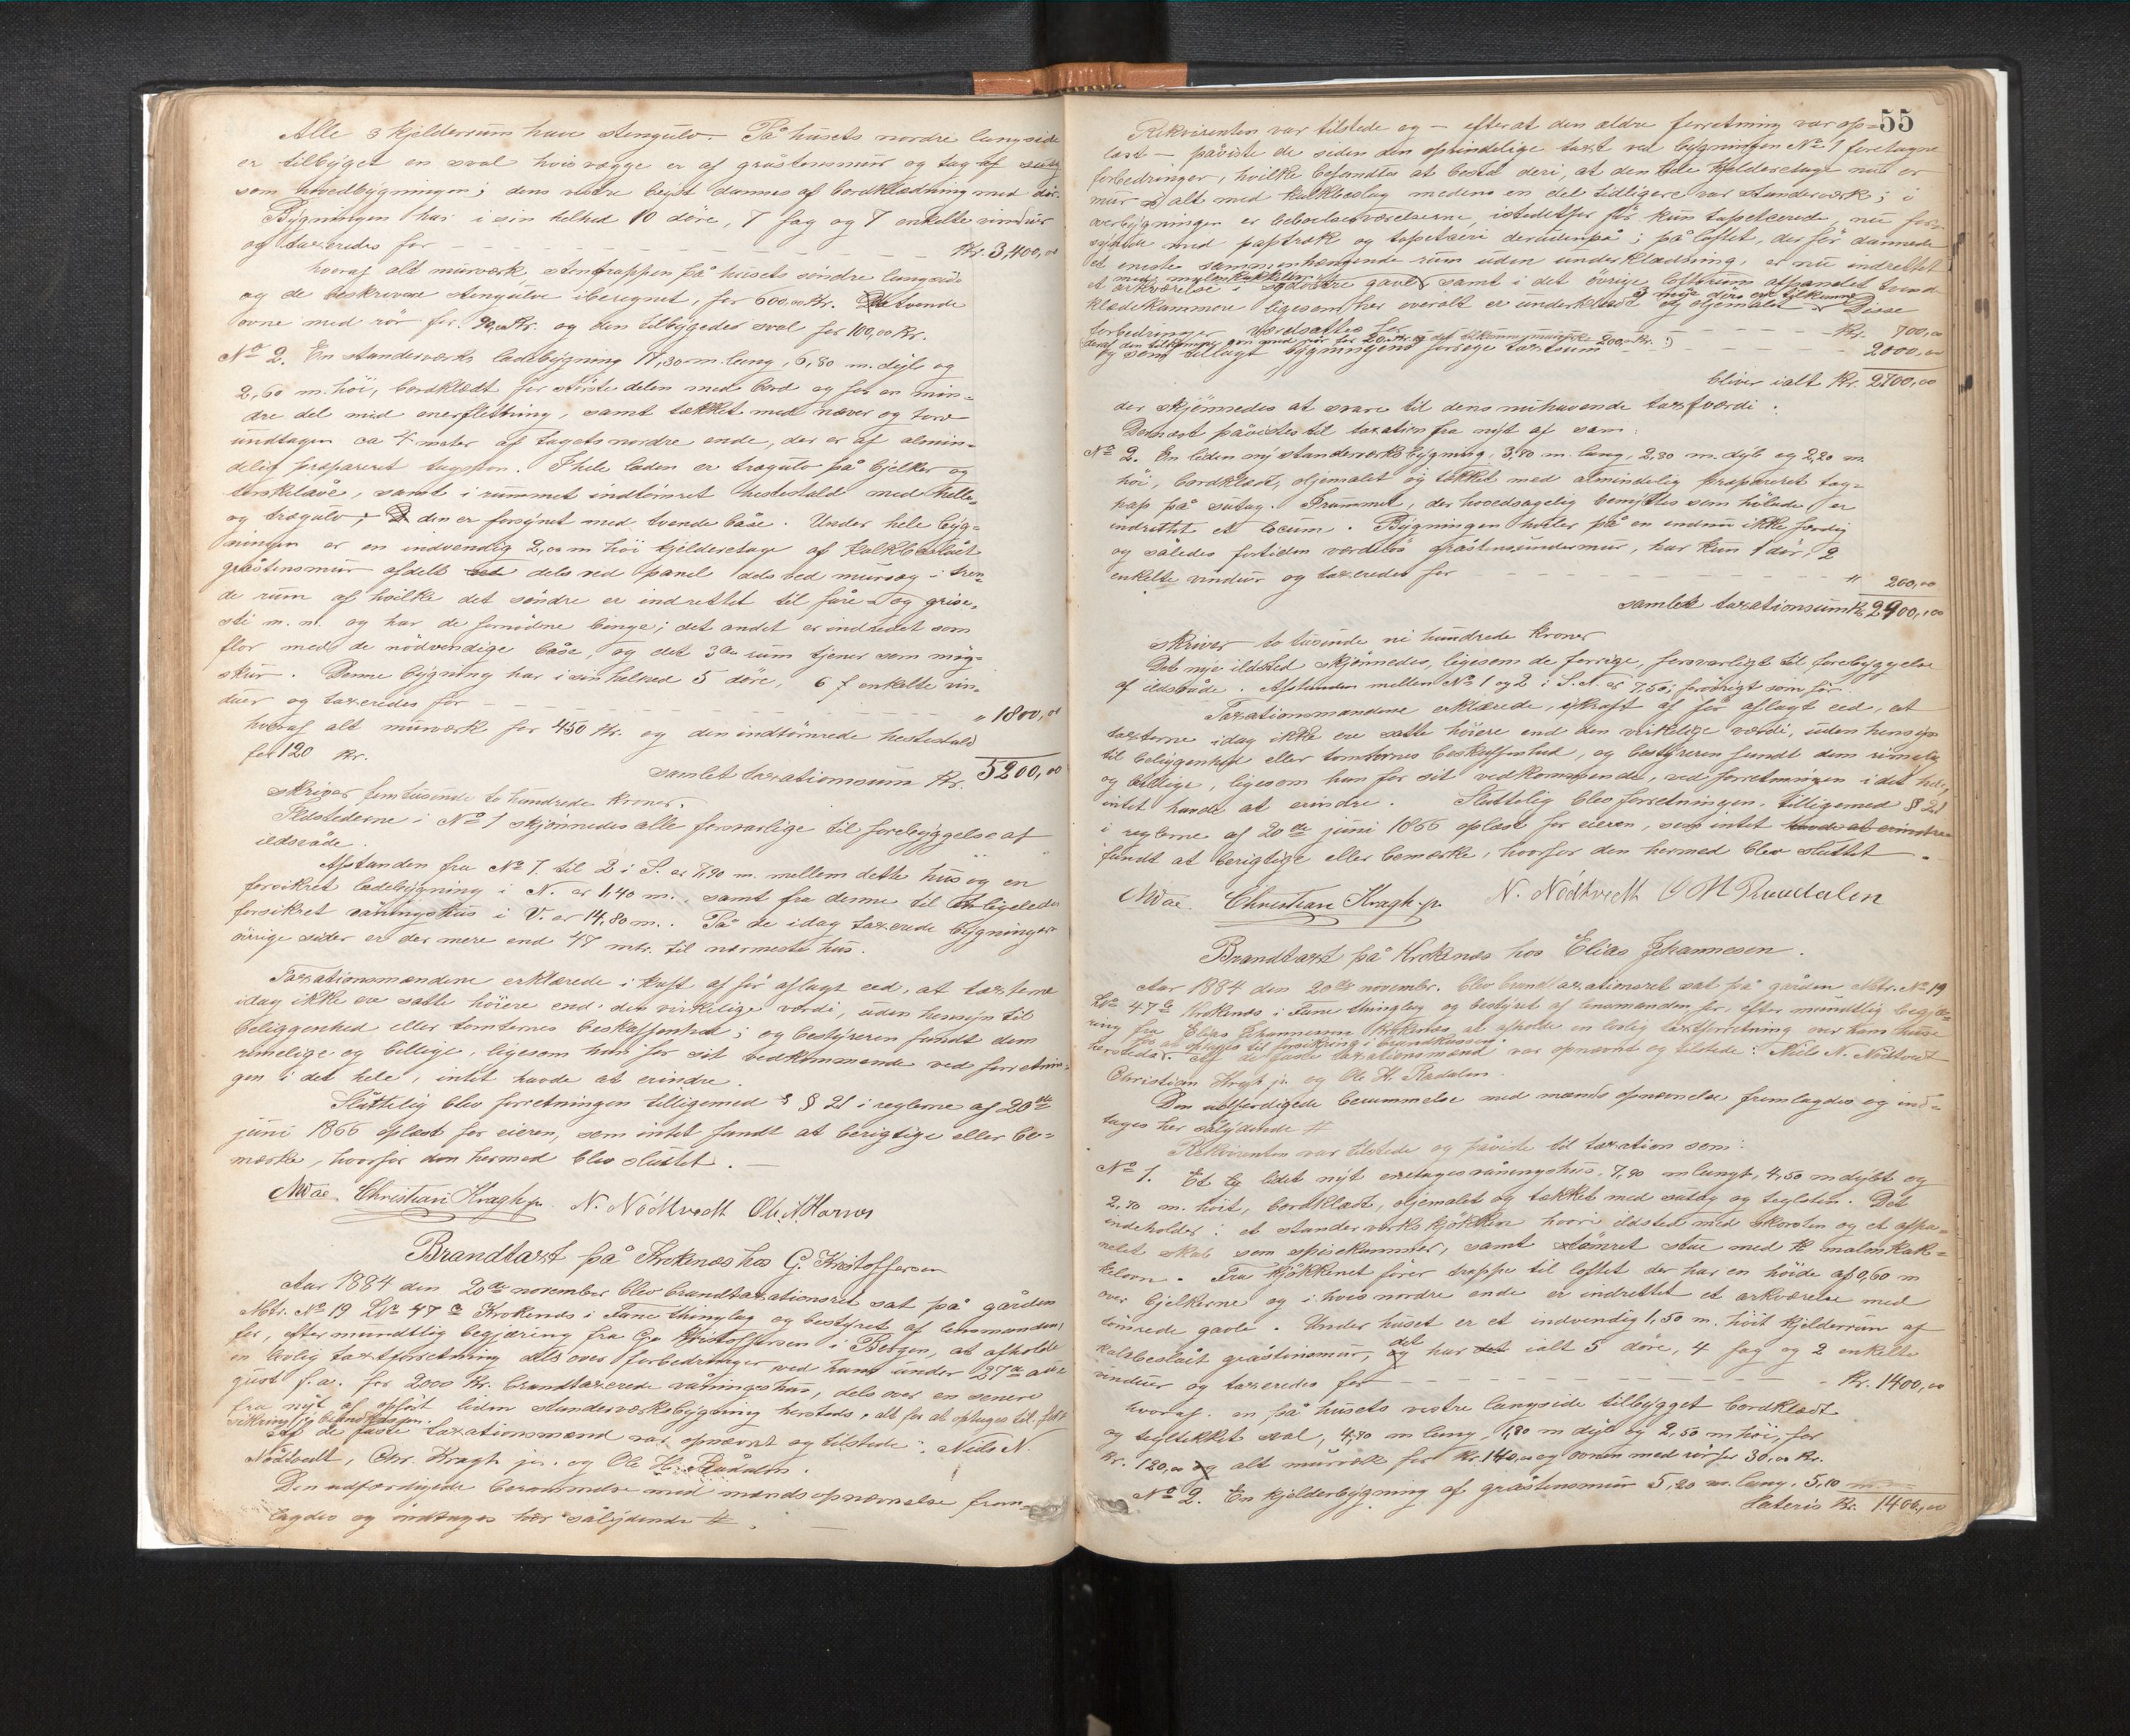 Alle 3 kjelderrum have stengulv. På husets nordre langside
er tilbygget en sval hvis vægge er af gråstensmur og tag af sutag
som hovedbygningen; dens vestre bryst dannes af bordklædning med dør.
Bygningen har i sin helhed 10 døre, 7 fag og 7 enkelte vinduer
og taxeredes for Kr. 3,400,00
hvoraf alt murværk stentrappen på husets søndre langside
og de beskrevne stengulve iberegnet, for 600,00 Kr. De tvende
ovne med rør for 90,00 Kr. og den tilbyggede sval for 100,00 Kr.
No 2. En standerværks ladebygning 17,30 m. lang, 6,80 m. dyb og
2,60 m. høi, bordklædt for største delen med bord og for en min-
dre del med enerflettning, samt tækket med næver og torv
undtagen ca 4 meter af tagets nordre ende, der er af almin-
delig præpareret tagspon. I hele laden er trægulv på bjelker og
tørskelave, samt i rummet indtømret hestestald med helle-
og trægulv; den er forsynet med tvende båse. Under hele byg-
ningen er en indvendig 2,00 m høi kjelderetage af kalkbeslået
gråstensmur afdelt dels ved panel dels ved murvæg i tven-
de rum af hvilke det søndre er indrettet til fåre- og grise-
sti m. m. og har de fornødne binge; det andet er indredet som
flor med de nödvendige båse, og det 3die rum tjener som møg-
skur. Denne bygning har i sin helhed 5 døre, 6 f enkelte vin-
duer og taxeredes for " 1800,00
hvoraf alt murværk for 450 Kr. og den indtømrede hestestald
for 120 Kr.
samlet taxationssum Kr. 5200,00
skriver femtusinde to hundrede kroner.
Ildstederne i No 1 skjønnedes alle forsvarlige til forebyggelse af
ildsvåde.
Afstanden fra No 1 til 2 i S. er 7,90 m. mellem dette hus og en
forsikret ladebygning i N. er 1,40 m., samt fra denne til en ligeledes
forsikret våningshus i V. er 14,80 m. På de idag taxerede bygningers
øvrige sider er der mere end 47 mtr. til nærmeste hus.
Taxationsmændene erklærede i kraft af før aflagt eed, at taxterne
idag ikke ere satte høiere end den virkelige værdi, uden hensyn til
beliggenhed eller tomternes beskaffenhed; og bestyreren fandt dem
rimelige og billige, ligesom han for sit vedkommende ved forretnin-
gen i det hele, intet havde at erindre.
Sluttelig blev forretningen tilligemed § 21 i reglerne af 20de
juni 1866 oplæst for eieren, som intet fandt at berigtige eller be-
mærke, hvorfor den hermed blev sluttet.
Christian Kragh jr. N. Nödtvedt
Brandtaxt på Krokenæs hos G. Kristoffersen
Aar 1884 den 20de november blev brandtaxationsret sat på gården
Mtr. No 19 Lr 47 c Krokenæs i Fane thinglag og bestyret af lensmanden,
for, efter mundtlig begjæring fra G. Kristoffersen i Bergen, at afholde
en lovlig taxtforretning dels over forbedringer ved hans under 27de au-
gust f. a. for 2000 Kr. brandtaxerede våningshus, dels over en senere
fra nyt af opført liden standerværksbygning hersteds, alt for at optages til for-
sikring i brandkassen.
Af de faste taxationsmænd var opnævnt og tilstede: Nils N.
Nödtvedt, Chr. Kragh jr. og Ole H. Rådalen.
Den udfærdigede berammelse med mændsopnævnelse frem-
lagdes og indtages her sålydende #
55
Rekvirenten var tilstede og — efterat den ældre forretning var op-
læst — påviste de siden den oprindelige taxt ved bygningen No 1 foretagne
forbedringer, hvilke befandtes at bestå deri, at den hele kjelderetage nu er
mur alt med kalkbeslag medens en del tidligere var standerværk; i
overbygningen er beboelsesværelserne, istedetfor før kun tapetserede, nu for-
synede med paptræk og tapetseri derudenpå; på loftet, der før dannede
et eneste sammenhængende rum uden underklædning, er nu indrettet
et arkværelse i vestre gavl, samt i det övrige loftsrum afpanelet tvende
klædekammere ligesom her overalt er underklædt og oljemalet. Disse
forbedringer værdsattes for Kr. 700,00
og som tillagt bygningens forrige taxtsum 2000,00
bliver ialt Kr. 2700,00
der skjønnedes at svare til dens nuhavende taxtværdi.
Dernæst påvistes til taxation fra nyt af som:
No 2. En liden ny standerværksbygning, 3,80 m. lang, 2,30 m. dyb og 2,20 m.
høi, bordklædt, oljemalet og tækket med almindelig præpareret tag-
pap på sutag. I rummet, der hovedsagelig benyttes som hölade, er
indrettet et locum. Bygningen hviler på en endnu ikke færdig
og således fortiden værdiløs gråstensundermur, har kun 1 dør, 2
enkelte vinduer og taxeredes for " 200,00
samlet taxationssum Kr. 2900,00
skriver to tusinde ni hundrede kroner
Det nye ildsted skjønnedes, ligesom de forrige, forsvarligt til forebyggelse
af ildsvåde. Afstanden mellem No 1 og 2 i S. N. er 7,50; forøvrigt som før.
Taxationsmændene erklærede, i kraft af før aflagt eed, at
taxterne idag ikke ere satte høiere end den virkelige værdi, uden hensyn
til beliggenhed eller tomternes beskaffenhed, og bestyreren fandt dem rimelige
og billige, ligesom han for sit vedkommende, ved forretningen i det hele,
intet havde at erindre. Sluttelig blev forretningen, tilligemed § 21
i reglerne af 20de juni 1866 oplæst for eieren, som intet havde at erindre
fandt at berigtige eller bemærke, hvorfor den hermed blev sluttet.
Christian Kragh jr. N. Nödtvedt
Brandtaxt på Krokenæs hos Elias Johannesen.
Aar 1884 den 20de novembr. blev brandtaxationsret sat på gården Mtr. No 19
Lr 47 c Krokenæs i Fane thinglag og bestyret af lensmanden for, efter mundtlig begjæ-
ring fra Elias Johannesen Krokenæs, at afholde en lovlig taxtforretning over hans huse
for at optages til forsikring i brandkassen.
hersteds. Af de faste taxationsmænd var opnævnt og tilstede: Nils N. Nödtvedt
Christian Kragh jr. og Ole H. Rådalen.
Den udfærdigede berammelse med mændsopnævnelse fremlagdes og ind-
tages her sålydende #
Rekvirenten var tilstede og påviste til taxation som:
No 1. Et lidet nyt enetages våningshus, 7,90 m langt, 4,50 m dybt og
2,70 m. høit, bordklædt, oljemalet og tækket med sutag og teglsten. Det
indeholder: et standerværks kjøkken hvori ildsted med skorsten og et afpa-
nelet skab som spisekammer, samt tømret stue med malmkak-
kelovn. Fra kjøkkenet fører trappe til loftet der har en høide af 0,60 m
over bjelkerne og i hvis nordre ende er indrettet et arkværelse med
tömrede gavle. Under huset er et indvendig 1,50 m. høit kjelderrum af
kalkbeslået gråstensmur, det har ialt 5 døre, 4 fag og 2 enkelte
vinduer og taxeredes for Kr. 1400,00
hvoraf en på husets vestre langside tilbygget bordklædt
og tegltækket sval, 4,70 m lang, 1,80 m dyb og 2,50 m høi, for
Kr. 120,00 alt murværk for Kr. 140,00 og ovnen med rør for 30,00 Kr.
No 2. En kjelderbygning af gråstensmur 5,20 m. lang, 5,10
Lateris Kr. 1400,00